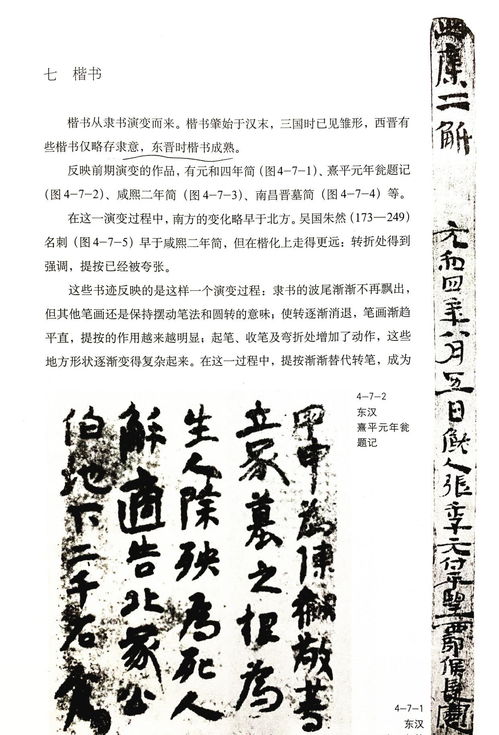 七 楷书
楷书从隶书演变而来。楷书肇始于汉末，三国时已见雏形，西晋有
些楷书仅略存隶意，东晋时楷书成熟。
反映前期演变的作品，有元和四年简（图4-7-1）、熹平元年瓮题记
（图4-7-2）、咸熙二年简（图4-7-3）、南昌晋墓简（图4-7-4）等。
在这一演变过程中，南方的变化略早于北方。吴国朱然（173—249）
名刺（图4-7-5）早于咸熙二年简，但在楷化上走得更远：转折处得到
强调，提按已经被夸张。
这些书迹反映的是这样一个演变过程：隶书的波尾渐渐不再飘出，
但其他笔画还是保持摆动笔法和圆转的意味；使转逐渐消退，笔画渐趋
平直，提按的作用越来越明显；起笔、收笔及弯折处增加了动作，这些
地方形状逐渐变得复杂起来。在这一过程中，提按渐渐替代转笔，成为
4-7-2
东汉
熹平元年瓮
题记
甲申为陈敬等
立冢墓之根为
生人除殃为死人
解適告北冢公
伯地下二千石
4-7-1
东汉
二斛
元和四年八月五日
人張季元付平望西部候長